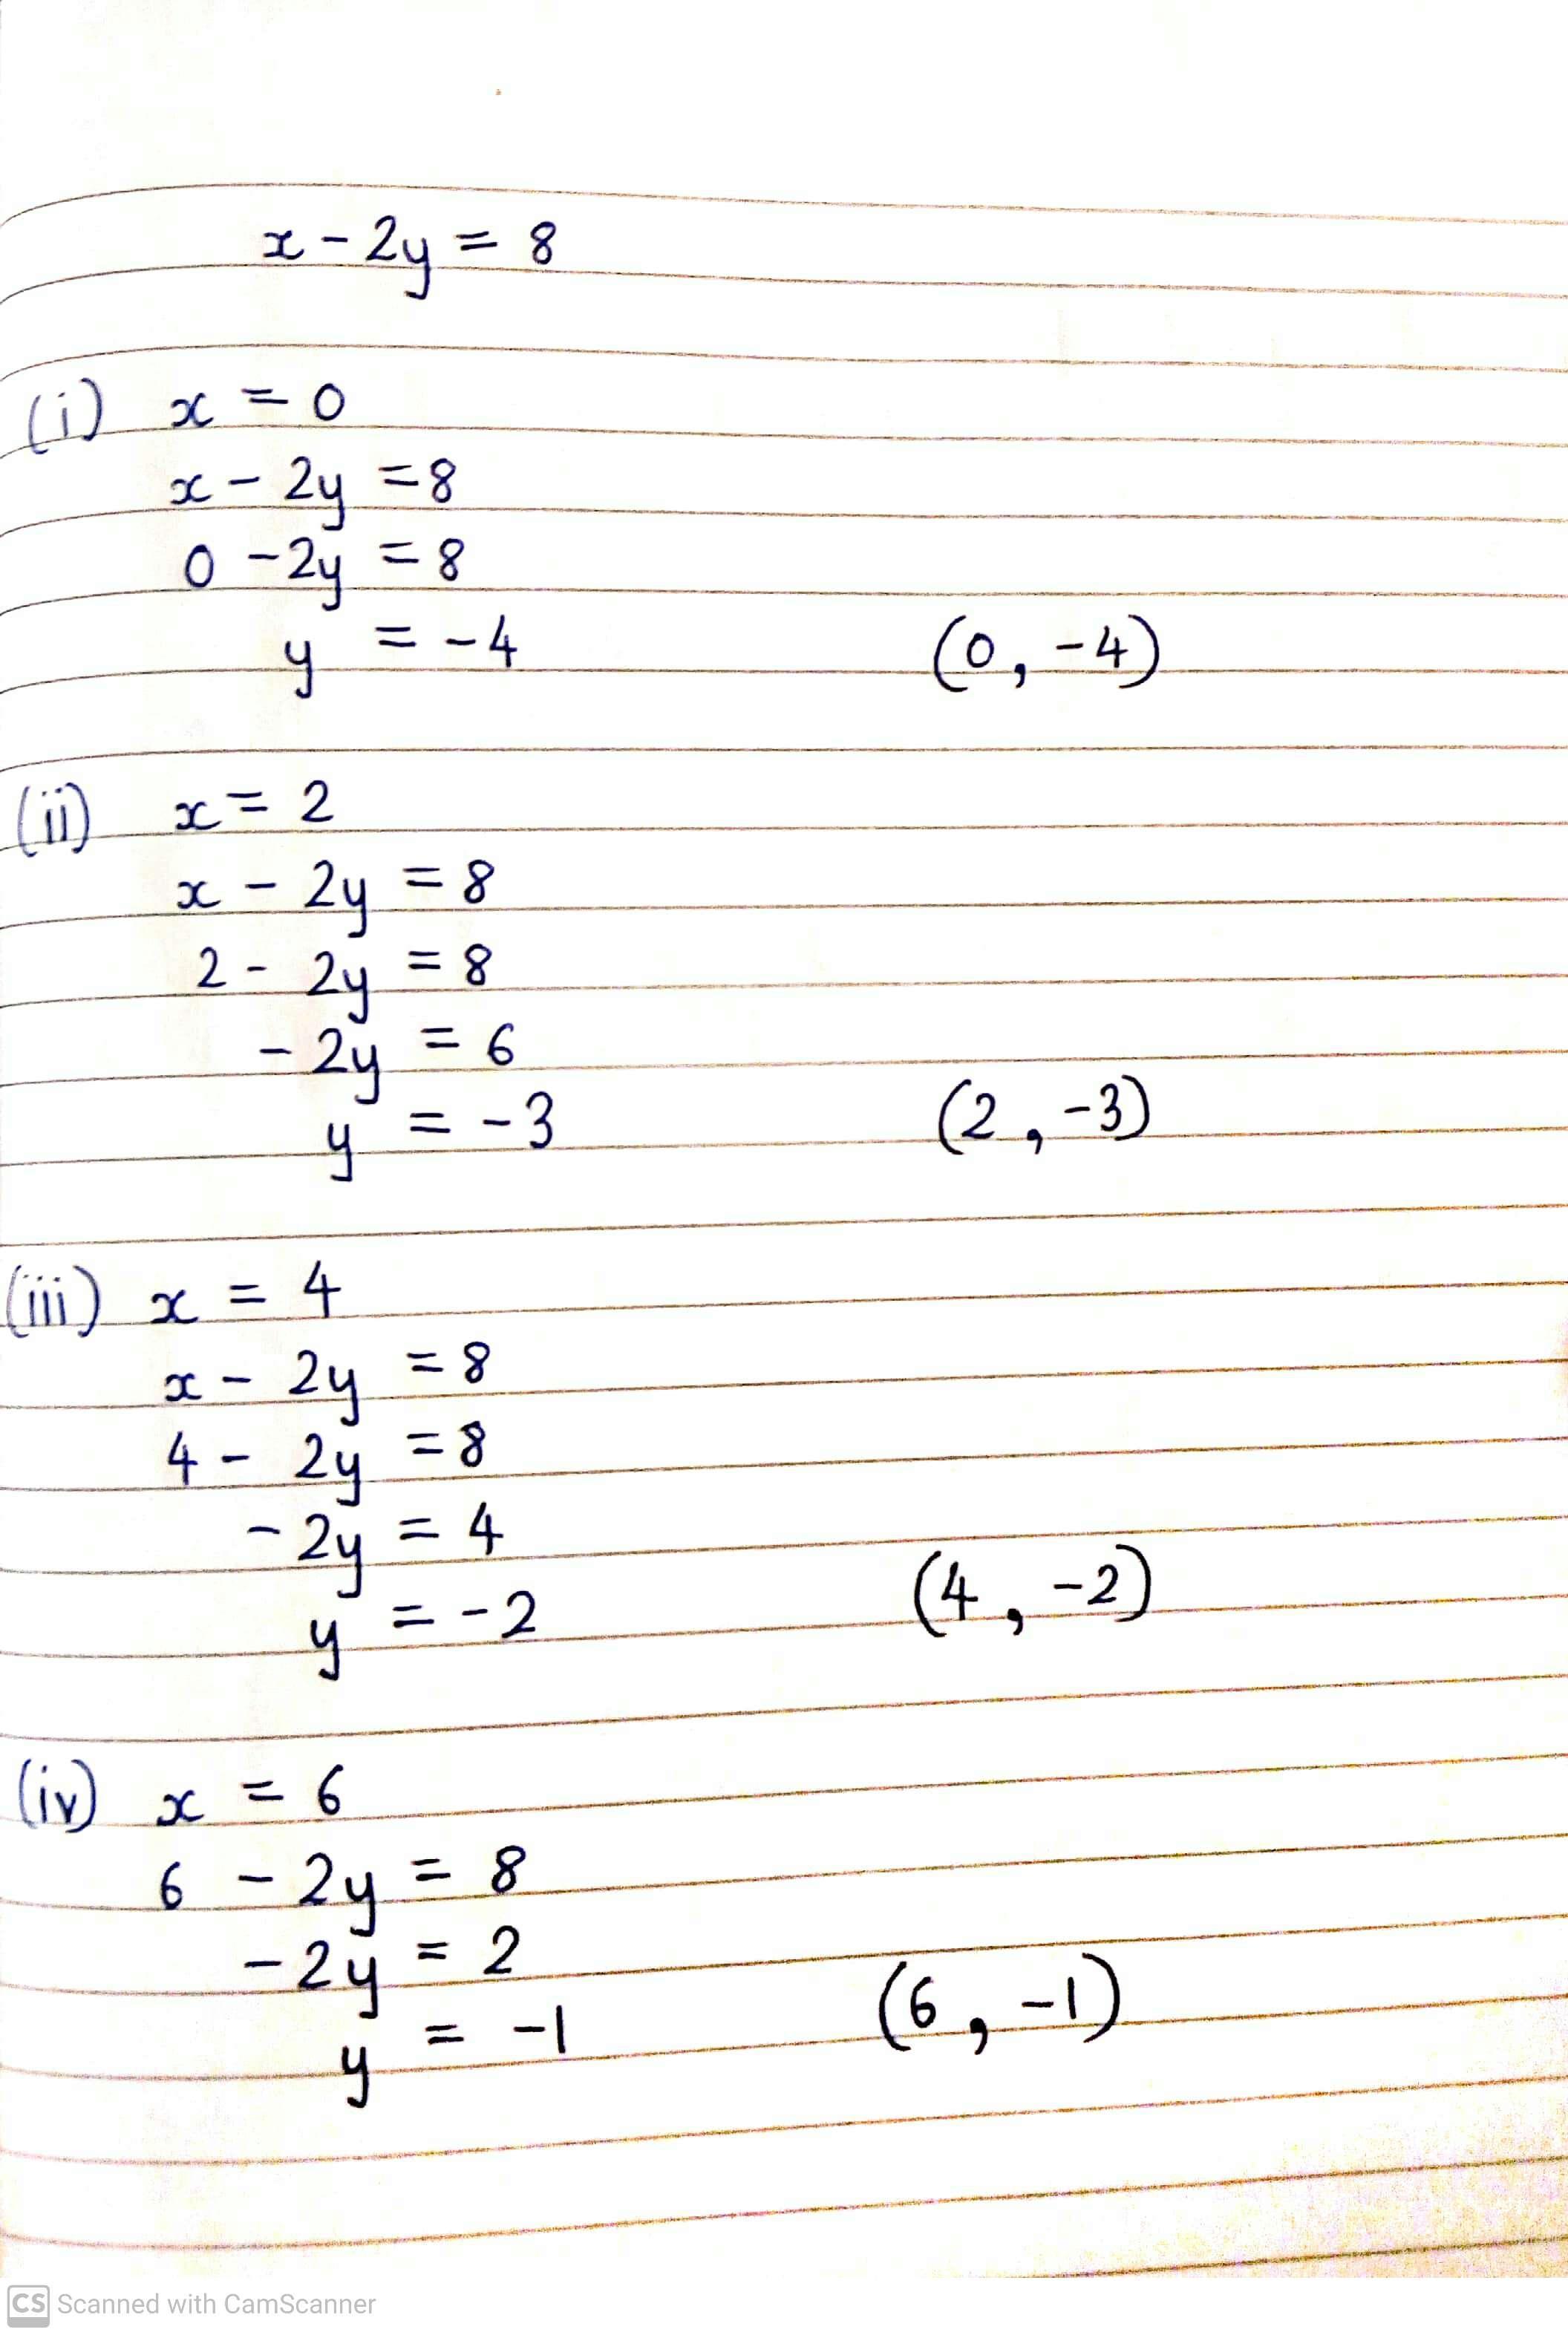 x - 2y = 8
(i) x = 0
x - 2y = 8
0 - 2y = 8
y = -4 (0, -4)
(ii) x = 2
x - 2y = 8
2 - 2y = 8
- 2y = 6
y = -3 (2, -3)
(iii) x = 4
x - 2y = 8
4 - 2y = 8
- 2y = 4
y = -2 (4, -2)
(iv) x = 6
6 - 2y = 8
- 2y = 2
y = -1 (6, -1)
CS Scanned with CamScanner